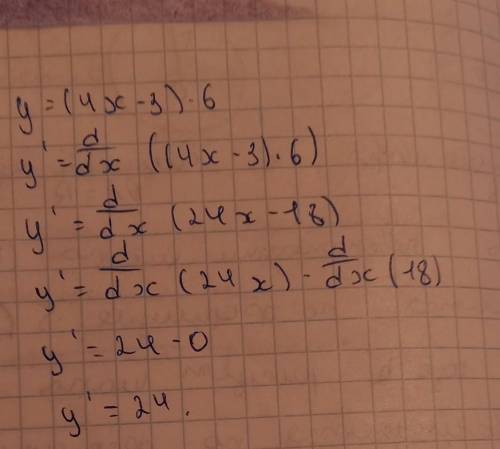 y = (4x - 3) · 6
y' = d/dx ((4x - 3) · 6)
y' = d/dx (24x - 18)
y' = d/dx (24x) - d/dx (18)
y' = 24 - 0
y' = 24.